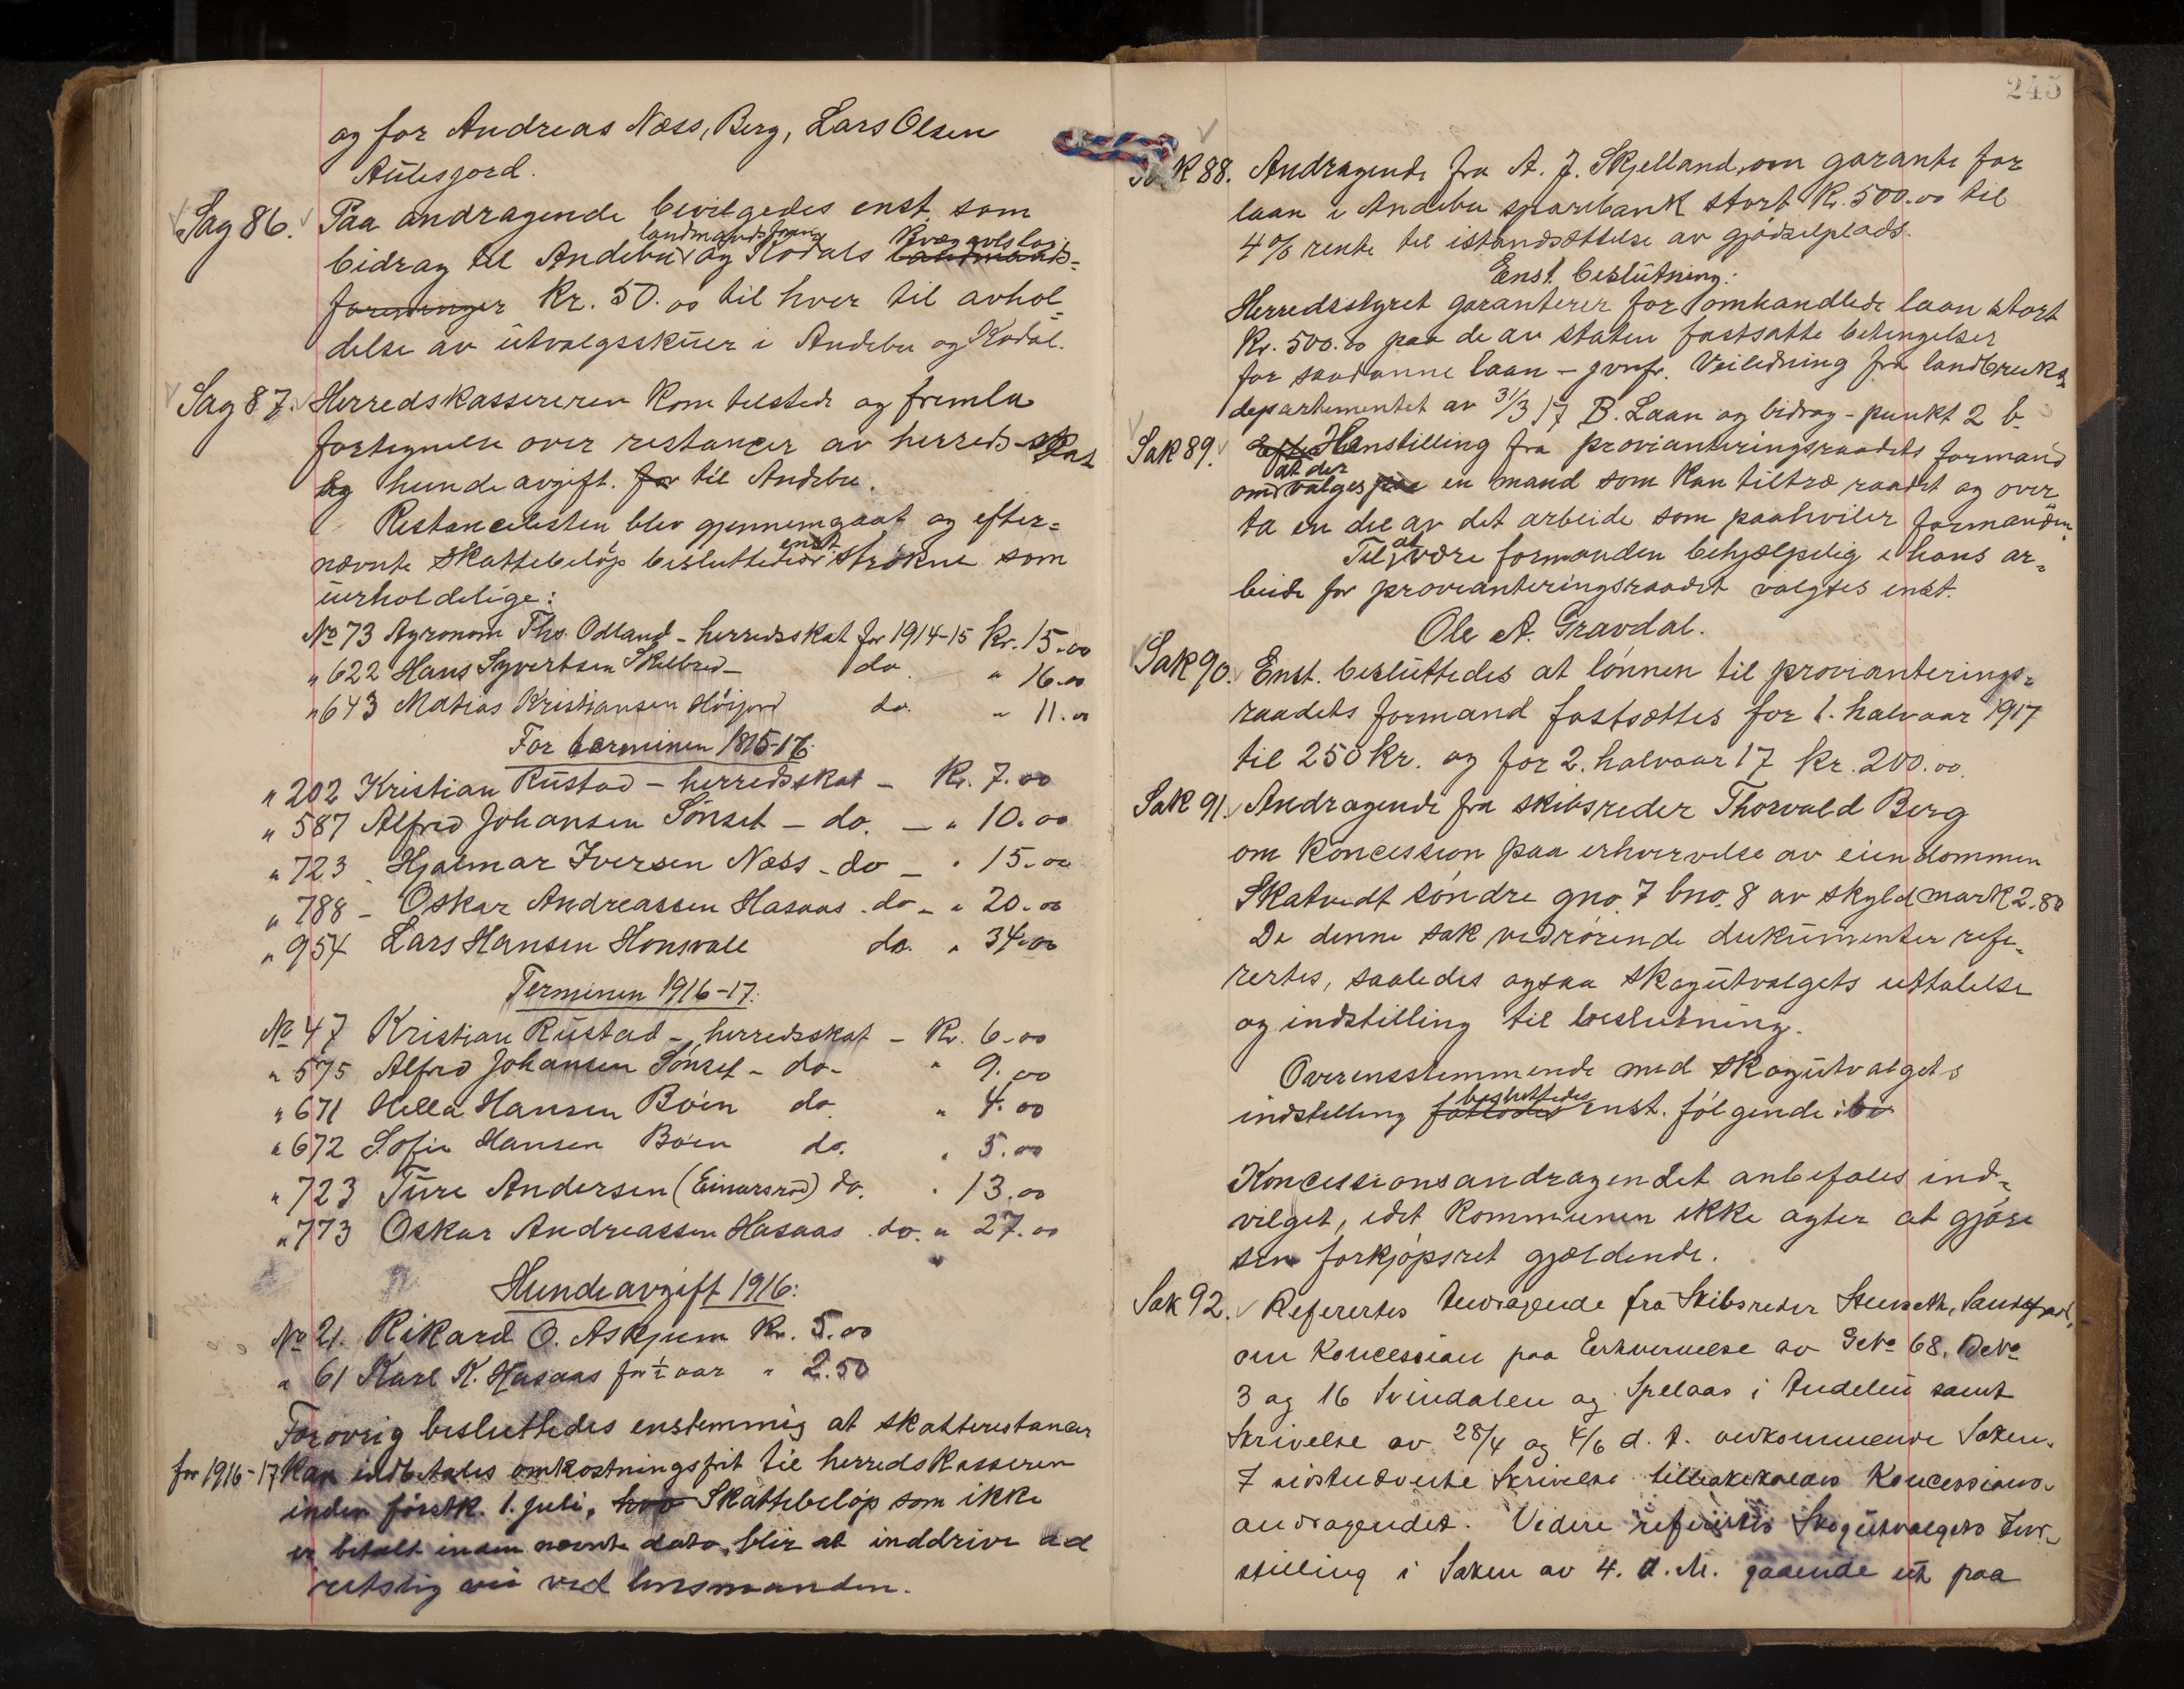 og for Andreas Næss, Berg, Lars Olsen
Aulesjord.
Sag 86. Paa andragende bevilgedes enst. som
bidrag til Andebu landmandsforen. og Kodals kvægavlslag landmands=
foreninger Kr. 50.00 til hver til avhol=
delse av utvalgsskuer i Andebu og Kodal.
Sag 87. Herredskassereren kom tilstede og fremla
fortegnelse over restancer av herreds-skat
og hundeavgift. for til Andebu.
Restancelisten blev gjennemgaat og efter=
nævnte skattebeløp besluttedes enst. strøkne som
uerholdelige:
No 73 Agronom Ths. Odland - herredsskat for 1914-15 Kr. 15.00
" 622 Hans Syvertsen Skilbred - do. " 16.00
" 643 Matias Kristiansen Höijord do. " 11.00
For terminen 1815-16:
" 202 Kristian Rustad - herredsskat - Kr. 7.00
" 587 Alfred Johansen Sönset - do. - " 10.00
" 723 Hjalmar Iversen Næss - do - " 15.00
" 788 - Oskar Andreassen Hasaas - do - " 20.00
" 954 Lars Hansen Honsvale do. " 34.00
Terminen 1916-17:
No 47 Kristian Rustad - herredsskat - Kr. 6.00
" 575 Alfred Johansen Sönset - do - " 9.00
" 671 Hella Hansen Böen do. " 4.00
" 672 Sofie Hansen Böen do. " 5.00
" 723 Ture Andersen (Einarsröd) do. " 13.00
" 773 Oskar Andreassen Hasaas . do. " 27.00
Hundeavgift 1916:
No 21. Rikard O. Askjum Kr. 5.00
" 61 Karl K. Hasaas for ½ aar " 2.50
Forøvrig besluttedes enstemmig at skatterestancer
for 1916-17 kan indbetales omkostningsfrit til herredskasseren
inden førstk. 1. juli, hvo Skattebeløp som ikke
er betalt inden nævnte dato, blir at inddrive ad
retslig vei ved lensmanden.
245
Sak 88. Andragende fra A. J. Skjelland, om garanti for
laan i Andebu sparebank stort Kr. 500.00 til
4 % rente til istandsættelse av gjødselplads.
Enst. beslutning:
Herredsstyret garanterer for omhandlede laan stort
Kr. 500.00 paa de av staten fastsatte betingelser
for saadanne laan - jvnfr. Veiledning fra landbruks
departementet av 31/3 17 B. Laan og bidrag - punkt 2 b.
Sak 89. Efter Henstilling fra provianteringsraadets formand
om at der vælges paa en mand som kan tiltræ raadet og over
ta en del av det arbeide som paahviler formanden.
Til at være formanden behjælpelig i hans ar=
beide for provianteringsraadet valgtes enst.
Ole A. Gravdal.
Sak 90. Enst. besluttedes at lønnen til provianterings=
raadets formand fastsættes for 1. halvaar 1917
til 250 kr. og for 2. halvaar 17 kr. 200.00.
Sak 91. Andragende fra skibsreder Thorvald Berg
om koncession paa erhvervelse av eiendommen
Skatvedt søndre gno. 7 bno. 8 av skyld mark 2.80
De denne sak vedrørende dukumenter refe=
rertes, saaledes ogsaa skogutvalgets uttalelse
og indstilling til beslutning.
Overensstemmende med skogutvalgets
indstilling fatledes besluttedes enst. følgende: be
Koncessionsandragendet anbefales ind=
vilget, idet kommunen ikke agter at gjøre
sin forkjøpsret gjældende.
Sak 92. Refertes Andragende fra Skibsreder Stenseth, Sandefjord,
om Koncession paa Erhvervelse av GNo 68. BNo
3 og 16 Svindalen og Spelaas i Andebu samt
Skrivelse av 28/4 og 4/6 d. A. vedkommende Saken.
I sidstnævnte Skrivelse tilbakekaldes Koncessions-
andragendet. Videre refertes Skogutvalgets Ind-
stilling i Saken av 4. d. M. gaaende ut paa